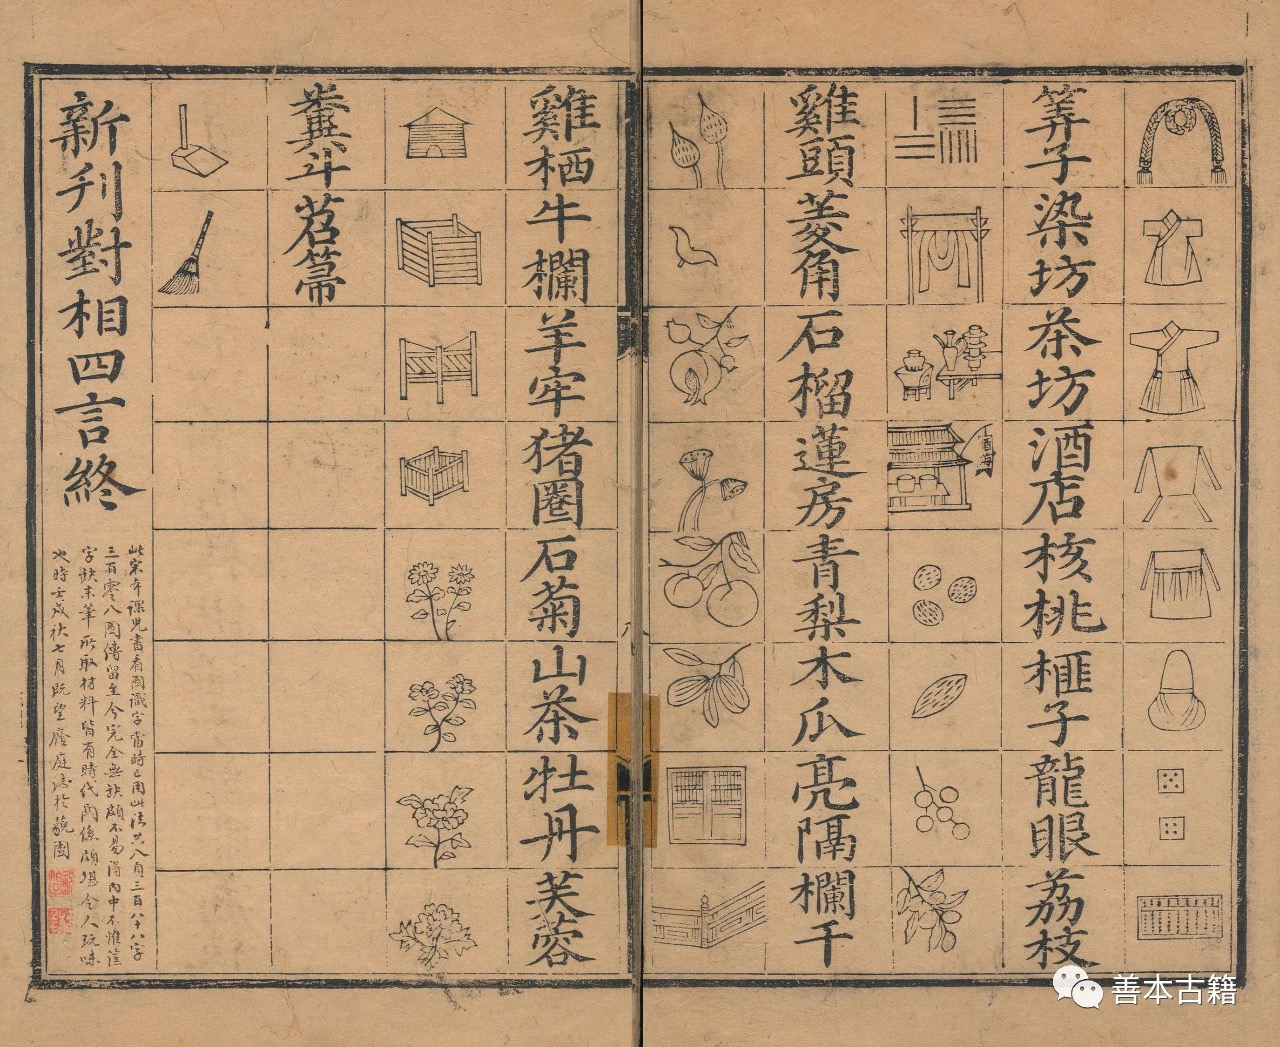 筭子染坊茶坊酒店核桃榧子龍眼荔枝
酒海
雞頭菱角石榴蓮房青梨木瓜亮隔欄干
雞栖牛欄羊牢猪圈石菊山茶牡丹芙蓉
糞斗苕箒
新刋對相四言終
此宋本課児書看圖識字當時已用此法共八頁三百八十八字
三百零八圖傳留至今完全無缺頗不易得內中不惟筐
字缺末筆所取材料皆有時代關係頗堪令人玩味
也時壬戌秋七月既望
善本古籍